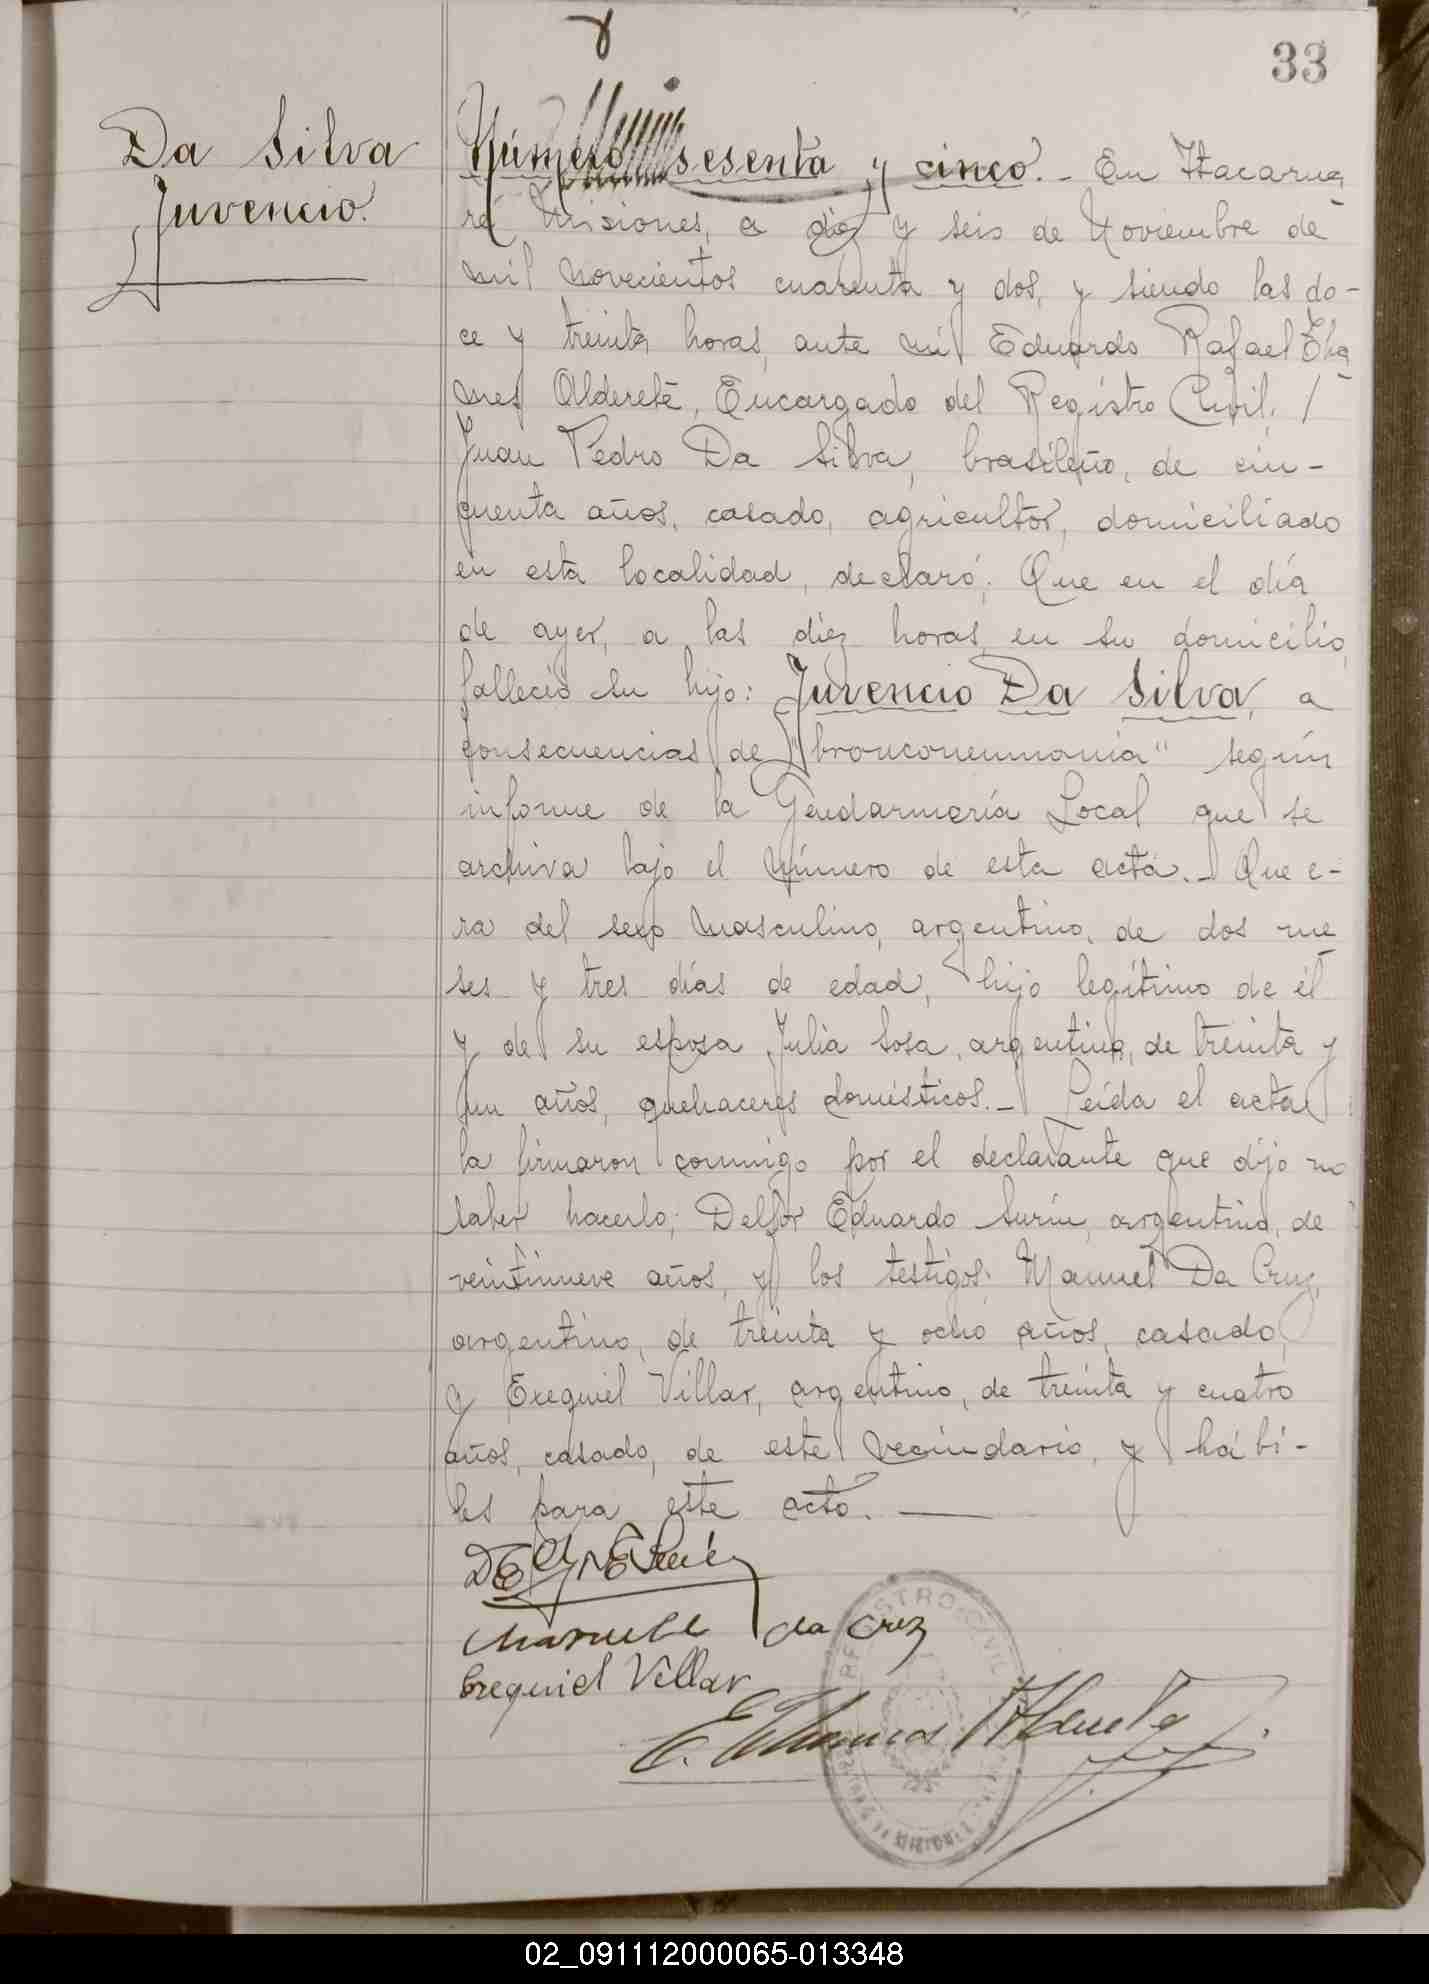 33
Da Silva
Juvencio.
Número sesenta y cinco.- En Itacarua
ré Misiones, a diez y seis de Noviembre de
mil novecientos cuarenta y dos, y siendo las do-
ce y treinta horas, ante mí Eduardo Rafael Tha
mes Alderete, Encargado del Registro Civil, /
Juan Pedro Da Silva, brasileño, de cin-
quenta años, casado, agricultor, domiciliado
en esta localidad, declaró; Que en el día
de ayer, a las diez horas en su domicilio,
falleció su hijo: Juvencio Da Silva, a
consecuencias de "bronconeumonía" según
informe de la Gendarmería Local que se
archiva bajo el número de esta acta.- Que e-
ra del sexo masculino, argentino, de dos me
ses y tres días de edad, hijo legítimo de él
y de su esposa Julia Sosa, argentina, de treinta y
un años, quehaceres domésticos.- Leída el acta
la firmaron conmigo por el declarante que dijo no
saber hacerlo; Delfor Eduardo Surín, argentino, de
veintinueve años, y los testigos: Manuel Da Cruz,
argentino, de treinta y ocho años, casado,
y Exequiel Villar, argentino, de treinta y cuatro
años, casado, de este vecindario, y hábi-
les para este acto.
Manuel da Cruz
Exequiel Villar
E. Thames Alderete
REGISTRO CIVIL
02_091112000065-013348